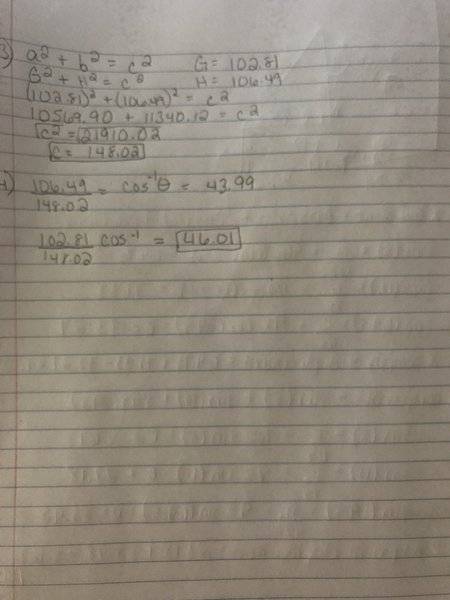 3) a² + b² = c² G = 102.81
G² + H² = c² H = 106.49
(102.81)² + (106.49)² = c²
10569.90 + 11340.12 = c²
c² = 21910.02
c = 148.02
4) 106.49/148.02 = cos⁻¹θ = 43.99
102.81/148.02 cos⁻¹ = 46.01